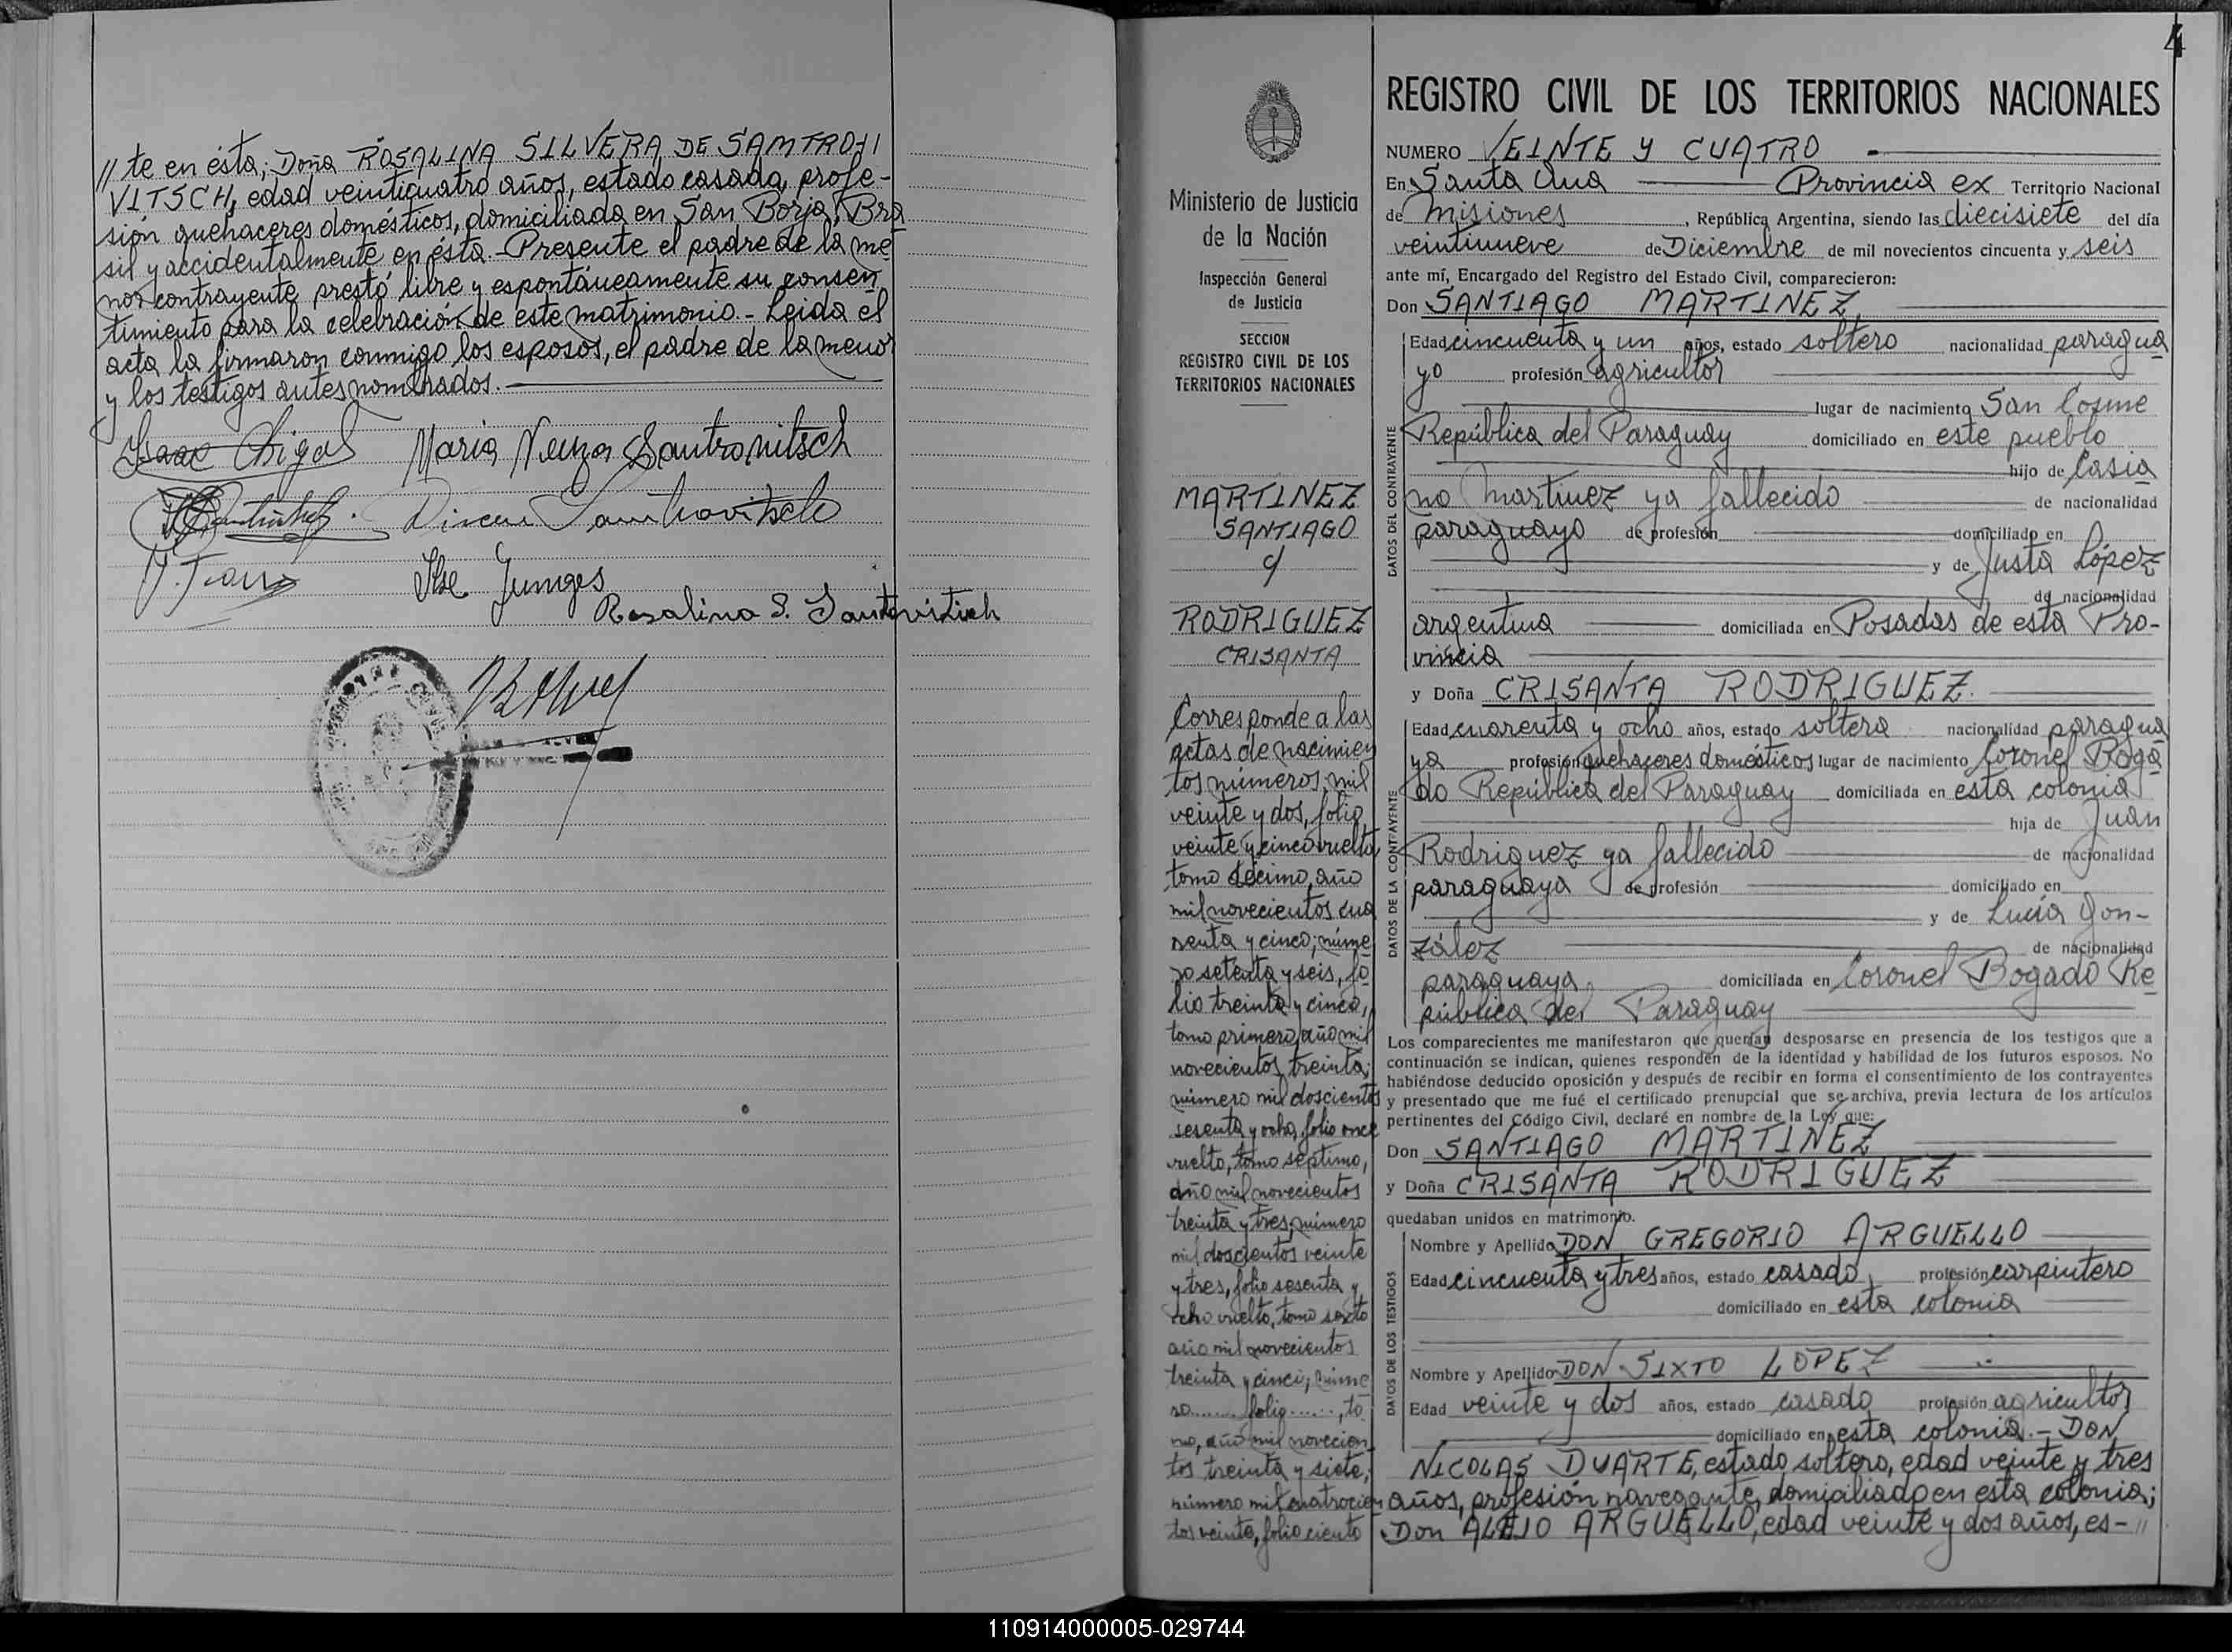 // te en ésta; Doña ROSALINA SILVERA DE SAMTROJI
VITSCH, edad veinticuatro años, estado casada, profe-
sión quehaceres domésticos, domiciliada en San Borja, Bra
sil y accidentalmente en ésta.- Presente el padre de la me
nor contrayente prestó libre y espontáneamente su consen
timiento para la celebración de este matrimonio.- Leida el
acta la firmaron conmigo los esposos, el padre de la menor
y los testigos antes nombrados.
Maria Neuza Santrovitsch
Ilse Junges
Rosalina S. Santovitsch
4
Ministerio de Justicia
de la Nación
Inspección General
de Justicia
SECCION
REGISTRO CIVIL DE LOS
TERRITORIOS NACIONALES
MARTINEZ
SANTIAGO
c/
RODRIGUEZ
CRISANTA
Corresponde a las
actas de nacimien
tos números, mil
veinte y dos, folio
veinte y cinco vuelto
tomo décimo, año
mil novecientos cua
renta y cinco; núme
ro setenta y seis, fo
lio treinta y cinco,
tomo primero, año mil
novecientos treinta;
número mil doscientos
sesenta y ocho, folio once
vuelto, tomo séptimo,
año mil novecientos
treinta y tres; número
mil doscientos veinte
y tres, folio sesenta y
ocho vuelto, tomo sexto
año mil novecientos
treinta y cinco; núme
ro....... folio ......, to
mo, año mil novecien
tos treinta y siete;
número mil cuatrocien
tos veinte, folio ciento
REGISTRO CIVIL DE LOS TERRITORIOS NACIONALES
NUMERO VEINTE Y CUATRO
En Santa Ana Provincia ex Territorio Nacional
de Misiones, República Argentina, siendo las diecisiete del día
veintinueve de Diciembre de mil novecientos cincuenta y seis
ante mí, Encargado del Registro del Estado Civil, comparecieron:
Don SANTIAGO MARTINEZ
DATOS DEL CONTRAYENTE
Edad cincuenta y un años, estado soltero nacionalidad paragua
yo profesión agricultor
lugar de nacimiento San Cosme
República del Paraguay domiciliado en este pueblo
hijo de Casia
no Martinez ya fallecido de nacionalidad
paraguayo de profesión domiciliado en
y de Justa López
de nacionalidad
argentina domiciliada en Posadas de esta Pro-
vincia
y Doña CRISANTA RODRIGUEZ.
DATOS DE LA CONTRAYENTE
Edad cuarenta y ocho años, estado soltera nacionalidad paragua
ya profesión quehaceres domésticos lugar de nacimiento Coronel Boga
do República del Paraguay domiciliada en esta colonia
hija de Juan
Rodriguez ya fallecido de nacionalidad
paraguaya de profesión domiciliado en
y de Lucía Gon-
zález de nacionalidad
paraguaya domiciliada en Coronel Bogado Re
pública del Paraguay
Los comparecientes me manifestaron que querían desposarse en presencia de los testigos que a
continuación se indican, quienes responden de la identidad y habilidad de los futuros esposos. No
habiéndose deducido oposición y después de recibir en forma el consentimiento de los contrayentes
y presentado que me fué el certificado prenupcial que se archiva, previa lectura de los artículos
pertinentes del Código Civil, declaré en nombre de la Ley que:
Don SANTIAGO MARTINEZ
y Doña CRISANTA RODRIGUEZ
quedaban unidos en matrimonio.
DATOS DE LOS TESTIGOS
Nombre y Apellido DON GREGORIO ARGUELLO
Edad cincuenta y tres años, estado casado, profesión carpintero
domiciliado en esta colonia
Nombre y Apellido DON SIXTO LOPEZ
Edad veinte y dos años, estado casado profesión agricultor
domiciliado en esta colonia.- DON
NICOLAS DUARTE, estado soltero, edad veinte y tres
años, profesión navegante, domiciliado en esta colonia;
Don ALEJO ARGUELLO, edad veinte y dos años, es- //
110914000005-029744